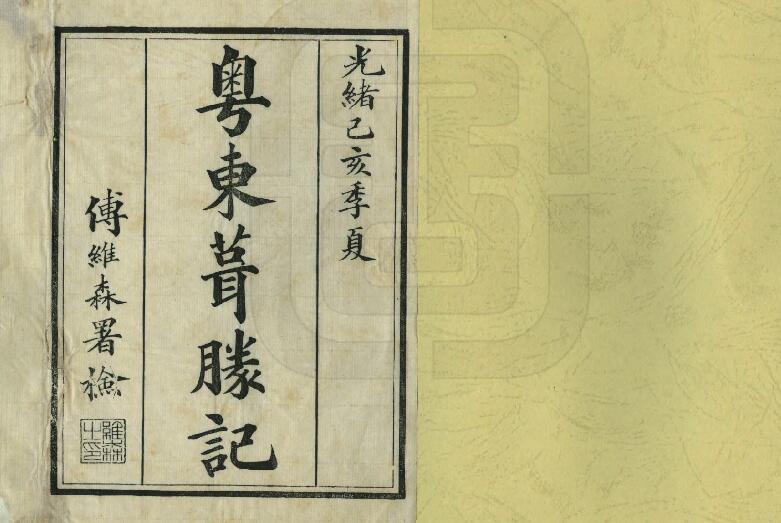 光緒己亥季夏
粵東葺勝記
傅維森署檢
維森之印